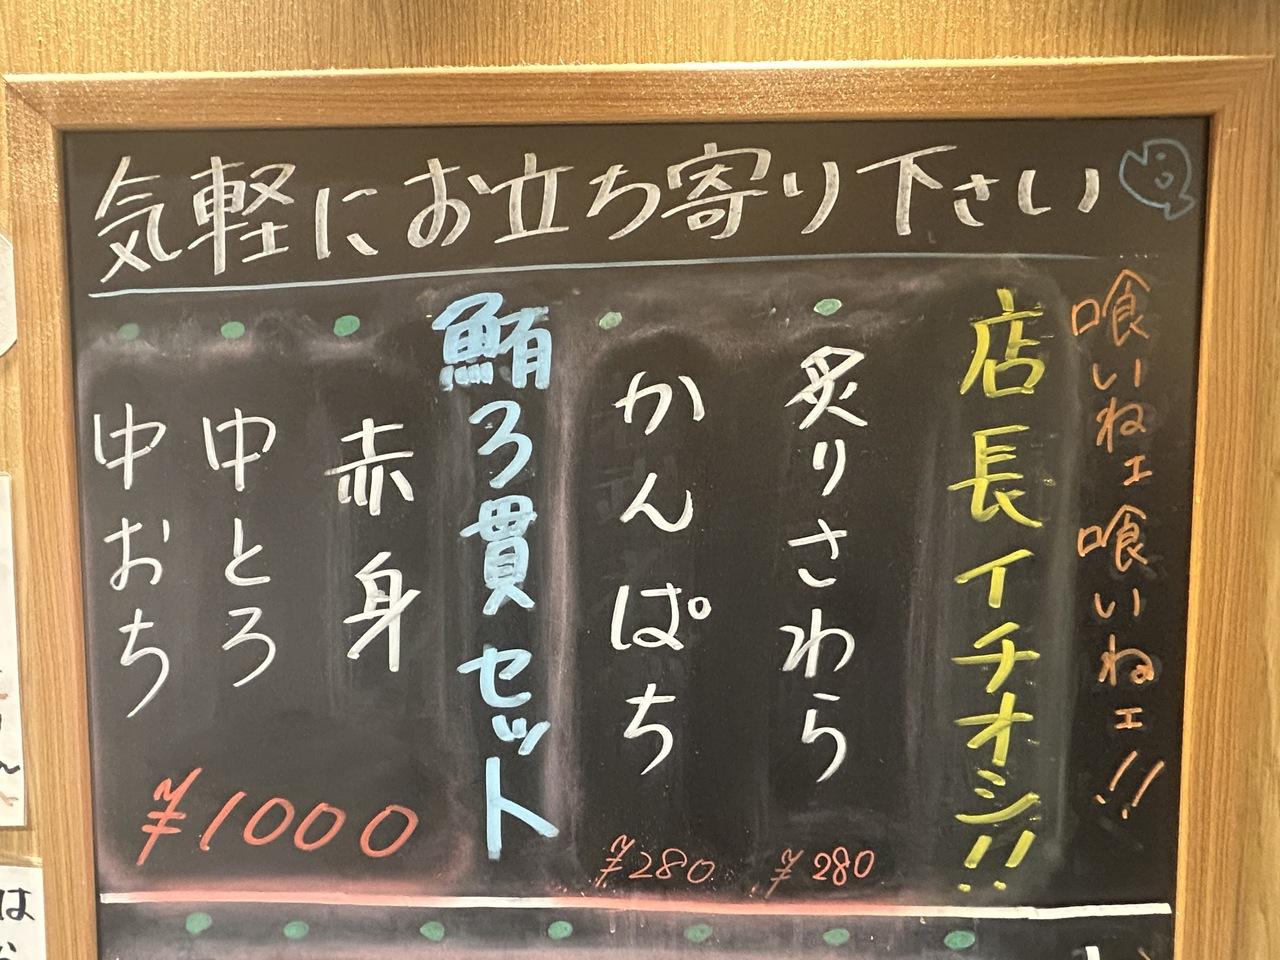 気軽にお立ち寄り下さい
喰いねェ喰いねェ!!
店長イチオシ!!
炙りさわら
¥280
かんぱち
¥280
鮪3貫セット
赤身
中とろ
中おち
¥1000